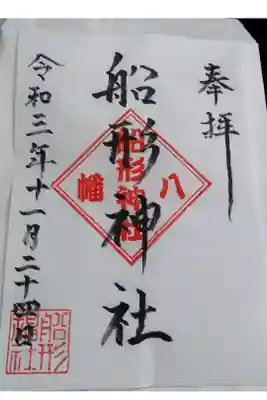 奉拝
船形神社
船形神社
八幡
令和三年十一月二十四日
船形神社